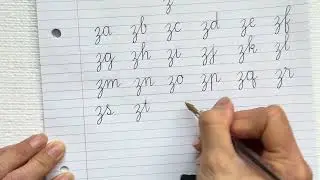 z
za zb zc zd ze zf
zg zh zi zj zk zl
zm zn zo zp zq zr
zs zt